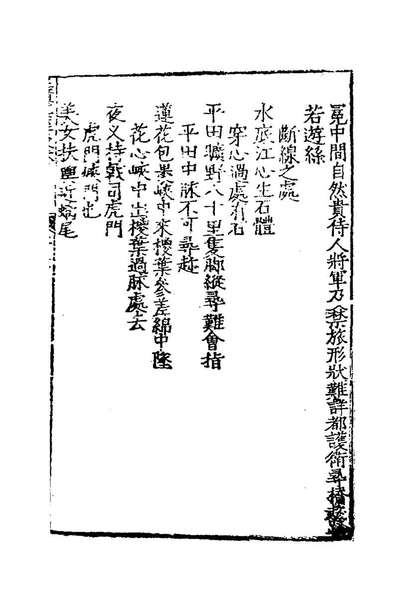 冕中間自然貴侍人將軍乃禁旅形狀難詳都護衛尋樁
若遊絲
斷線之處
水底江心生石體
穿心過處有石
平田曠野八十里隻脚縱尋難會指
平田中脉不可尋趂
蓮花包果峽中來椶葉參差綿中隆
花心峽中出椶葉過脉處去
夜义持戟司虎門
虎門峽門也
美女扶轝蝎尾